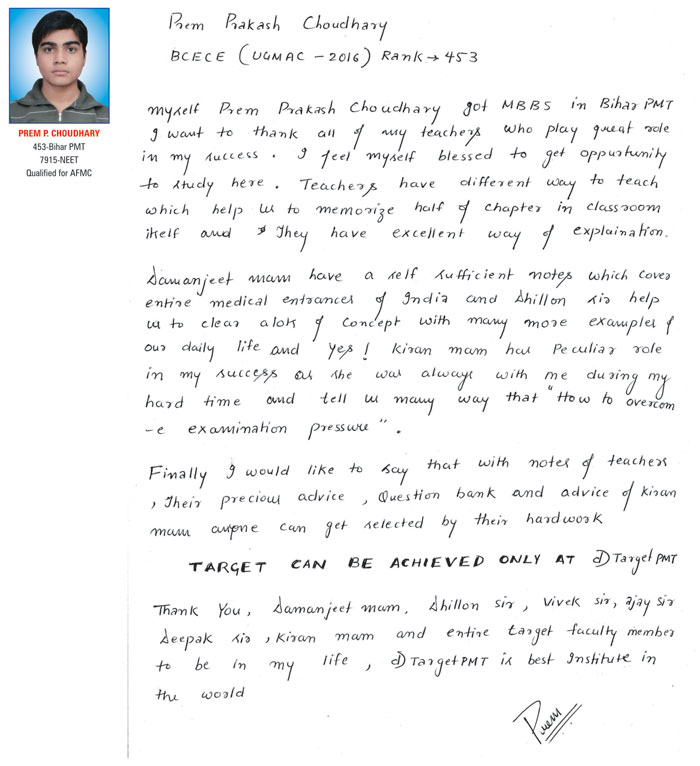 Prem Prakash Choudhary
BCECE (UGMAC - 2016) Rank → 453
PREM P. CHOUDHARY
453-Bihar PMT
7915-NEET
Qualified for AFMC
myself Prem Prakash Choudhary got MBBS in Bihar PMT
I want to thank all of my teachers who play great role
in my success. I feel myself blessed to get oppurtunity
to study here. Teachers have different way to teach
which help us to memorize half of chapter in classroom
itself and They have excellent way of explaination.
Damanjeet mam have a self sufficient notes which cover
entire medical entrances of India and Dhillon sir help
us to clear alot of concept with many more examples of
our daily life and Yes! Kiran mam has Peculiar role
in my success as she was always with me during my
hard time and tell us many way that "How to overcom
-e examination pressure".
Finally I would like to say that with notes of teachers
, Their precious advice, Question bank and advice of kiran
mam anyone can get selected by their hardwork
TARGET CAN BE ACHIEVED ONLY AT @TargetPMT
Thank You, Damanjeet mam, Dhillon sir, Vivek sir, ajay sir
Deepak sir, Kiran mam and entire target faculty member
to be in my life, @TargetPMT is best Institute in
the world
Prem